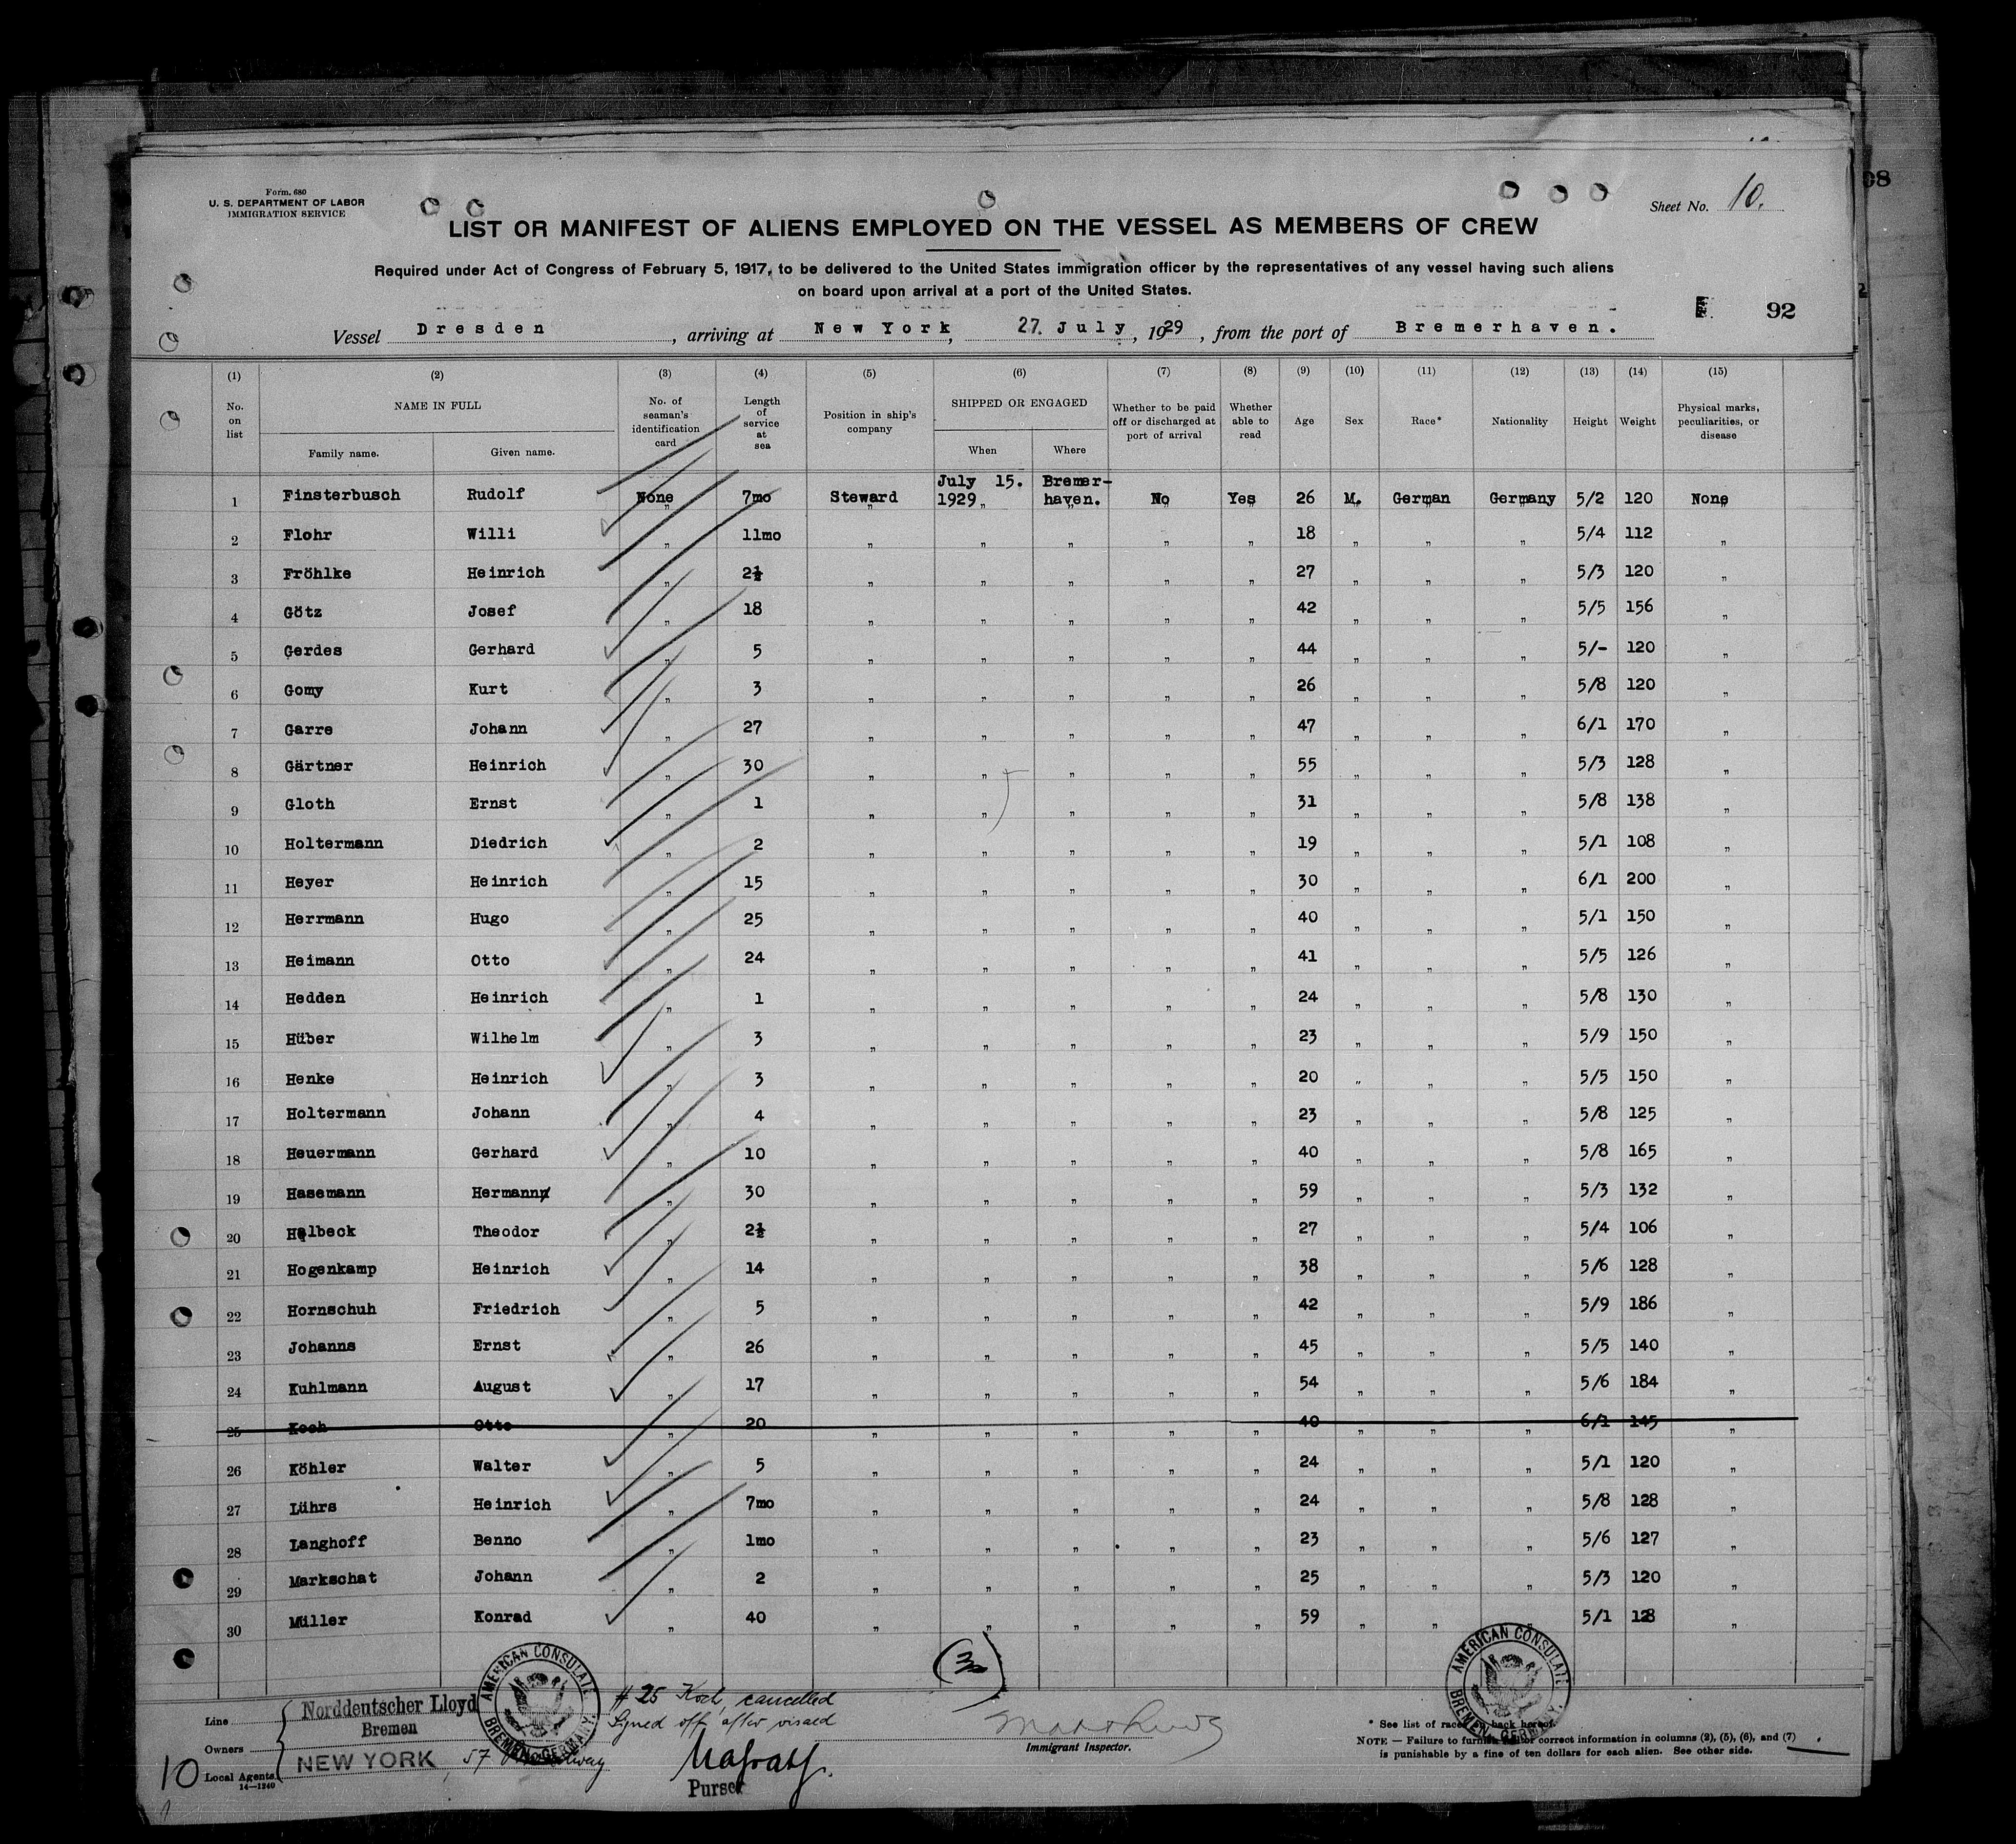 Form. 680
U. S. DEPARTMENT OF LABOR
IMMIGRATION SERVICE
Sheet No. 10.
98
LIST OR MANIFEST OF ALIENS EMPLOYED ON THE VESSEL AS MEMBERS OF CREW
Required under Act of Congress of February 5, 1917, to be delivered to the United States immigration officer by the representatives of any vessel having such aliens
on board upon arrival at a port of the United States.
92
Vessel Dresden, arriving at New York, 27. July, 1929, from the port of Bremerhaven.
(1) (2) (3) (4) (5) (6) (7) (8) (9) (10) (11) (12) (13) (14) (15)
No. on list NAME IN FULL Family name. Given name. No. of seaman's identification card Length of service at sea Position in ship's company SHIPPED OR ENGAGED When Where Whether to be paid off or discharged at port of arrival Whether able to read Age Sex Race* Nationality Height Weight Physical marks, peculiarities, or disease
1 Finsterbusch Rudolf None 7mo Steward July 15. 1929 Bremer-haven. No Yes 26 M. German Germany 5/2 120 None
2 Flohr Willi " 11mo " " " " " 18 " " " 5/4 112 "
3 Fröhlke Heinrich " 2½ " " " " " 27 " " " 5/3 120 "
4 Götz Josef " 18 " " " " " 42 " " " 5/5 156 "
5 Gerdes Gerhard " 5 " " " " " 44 " " " 5/- 120 "
6 Gomy Kurt " 3 " " " " " 26 " " " 5/8 120 "
7 Garre Johann " 27 " " " " " 47 " " " 6/1 170 "
8 Gärtner Heinrich " 30 " " " " " 55 " " " 5/3 128 "
9 Gloth Ernst " 1 " " " " " 31 " " " 5/8 138 "
10 Holtermann Diedrich " 2 " " " " " 19 " " " 5/1 108 "
11 Heyer Heinrich " 15 " " " " " 30 " " " 6/1 200 "
12 Herrmann Hugo " 25 " " " " " 40 " " " 5/1 150 "
13 Heimann Otto " 24 " " " " " 41 " " " 5/5 126 "
14 Hedden Heinrich " 1 " " " " " 24 " " " 5/8 130 "
15 Hüber Wilhelm " 3 " " " " " 23 " " " 5/9 150 "
16 Henke Heinrich " 3 " " " " " 20 " " " 5/5 150 "
17 Holtermann Johann " 4 " " " " " 23 " " " 5/8 125 "
18 Heuermann Gerhard " 10 " " " " " 40 " " " 5/8 165 "
19 Hasemann Hermann " 30 " " " " " 59 " " " 5/3 132 "
20 Helbeck Theodor " 2½ " " " " " 27 " " " 5/4 106 "
21 Hogenkamp Heinrich " 14 " " " " " 38 " " " 5/6 128 "
22 Hornschuh Friedrich " 5 " " " " " 42 " " " 5/9 186 "
23 Johanns Ernst " 26 " " " " " 45 " " " 5/5 140 "
24 Kuhlmann August " 17 " " " " " 54 " " " 5/6 184 "
25 Koch Otto " 20 " " " " " 40 " " " 6/1 145 "
26 Köhler Walter " 5 " " " " " 24 " " " 5/1 120 "
27 Lührs Heinrich " 7mo " " " " " 24 " " " 5/8 128 "
28 Langhoff Benno " 1mo " " " " " 23 " " " 5/6 127 "
29 Markschat Johann " 2 " " " " " 25 " " " 5/3 120 "
30 Müller Konrad " 40 " " " " " 59 " " " 5/1 128 "
AMERICAN CONSULATE BREMEN, GERMANY.
AMERICAN CONSULATE BREMEN, GERMANY.
Line Norddeutscher Lloyd
Bremen
Owners
Local Agents NEW YORK, 57 Broadway
14—1240
10
# 25 Koch, cancelled
Signed off after visaed
Purser
Immigrant Inspector.
* See list of races on back hereof.
NOTE — Failure to furnish full or correct information in columns (2), (5), (6), and (7)
is punishable by a fine of ten dollars for each alien. See other side.